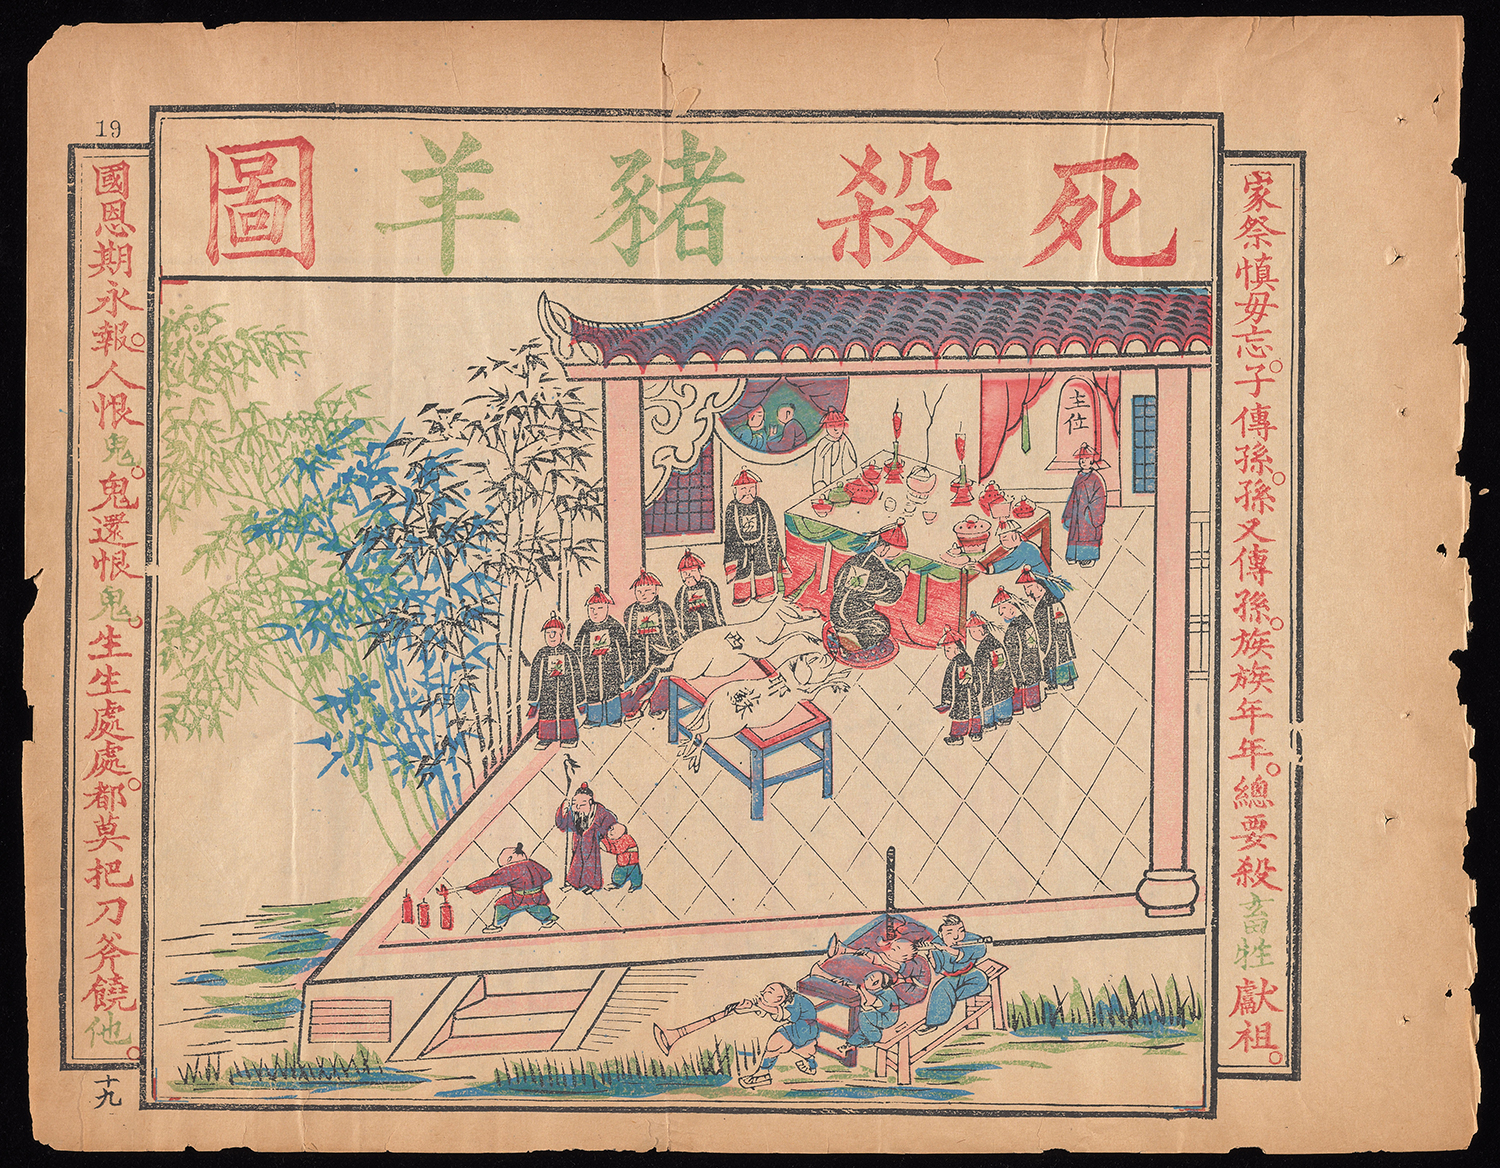 死殺豬羊圖
家祭慎毋忘。子傳孫。孫又傳孫。族族年年。總要殺畜牲獻祖。
主位
西
耶蘇
19
國恩期永報。人恨鬼。鬼還恨鬼。生生處處。都莫把刀斧饒他。
十九